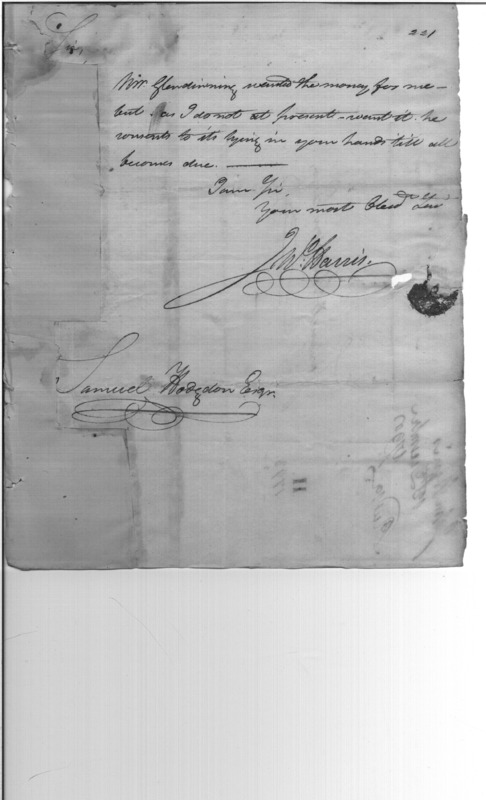 221
Mr. Glendinning wanted the money for me -
but. as I do not at present - want it. he
consents to its lying in your hands till all
becomes due. ———
I am Sir
Your most Obed.
Jno. Harris.
Samuel Hodgdon Esqr.